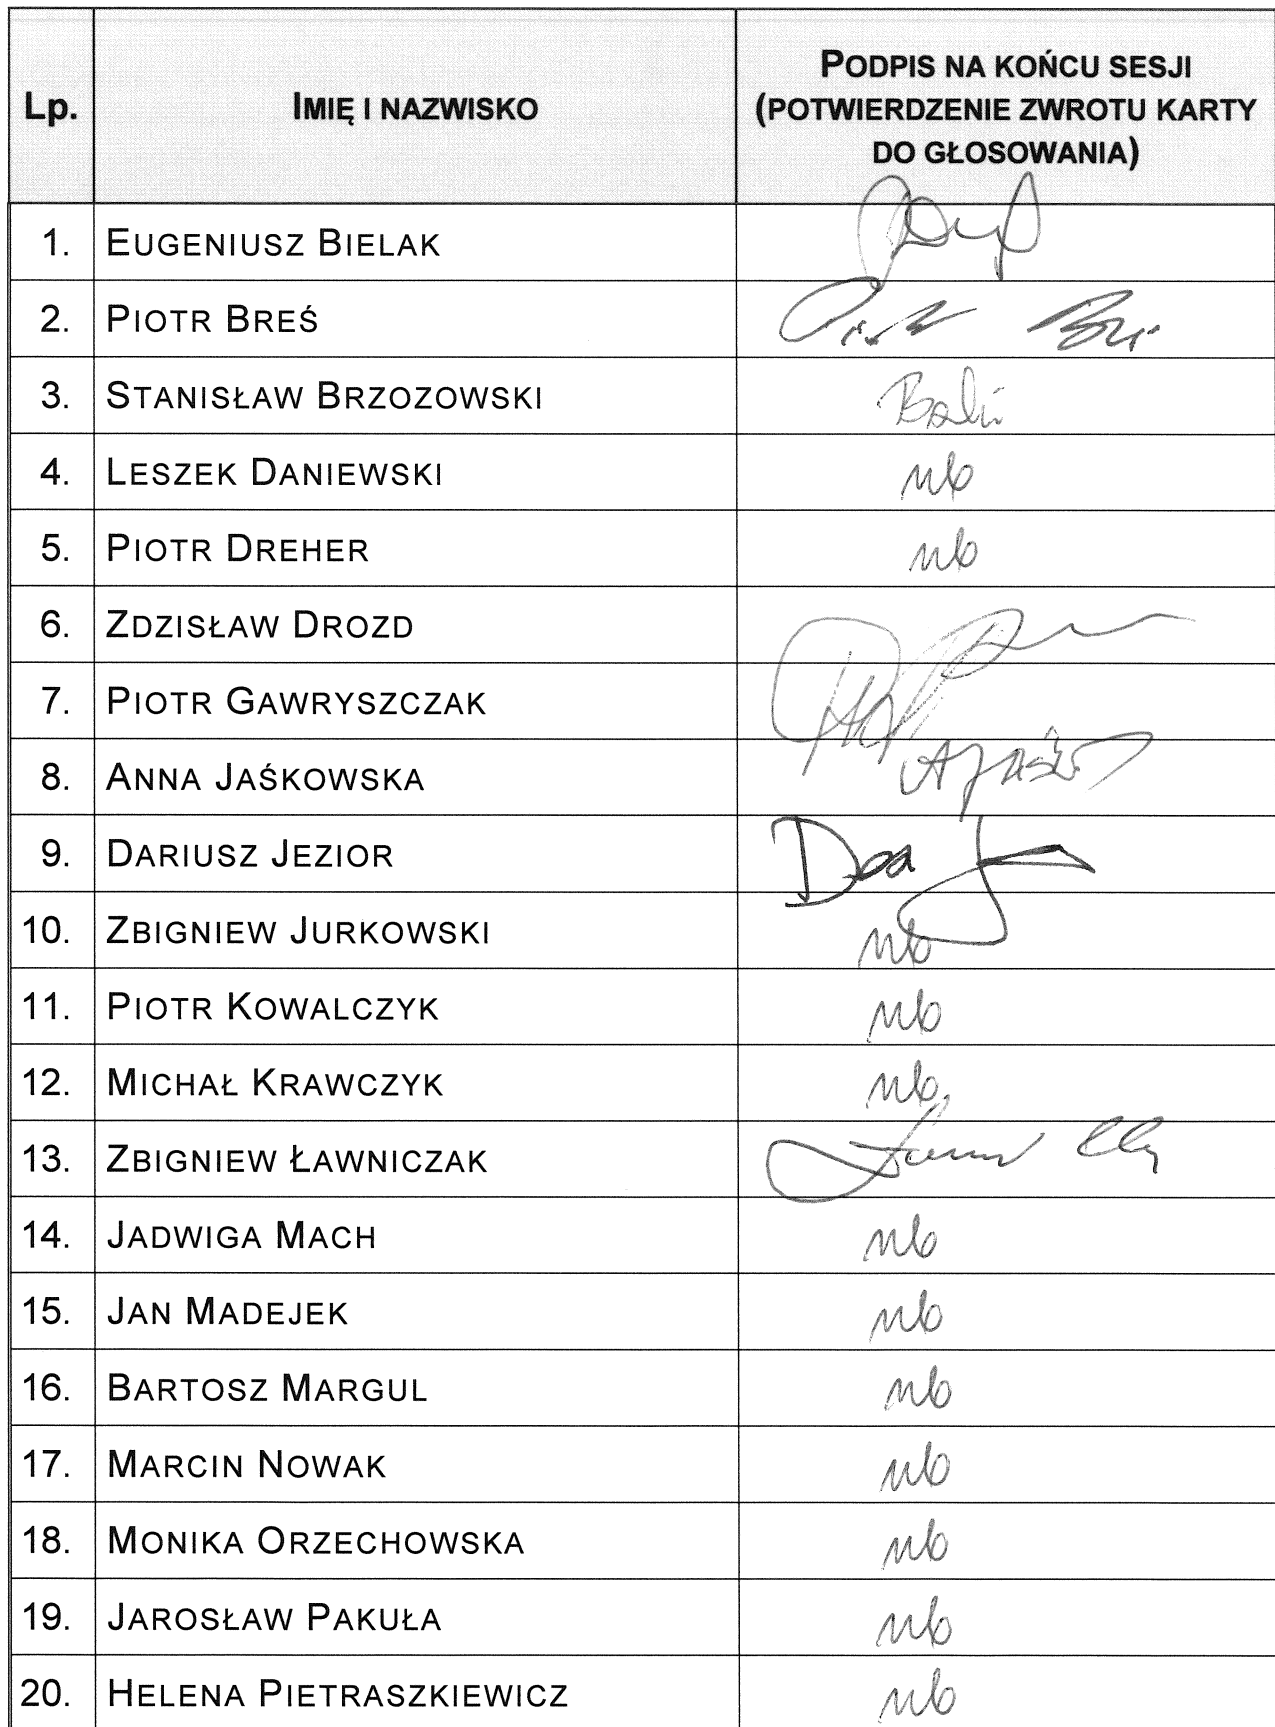 Lp. IMIĘ I NAZWISKO PODPIS NA KOŃCU SESJI
(POTWIERDZENIE ZWROTU KARTY
DO GŁOSOWANIA)
1. EUGENIUSZ BIELAK
2. PIOTR BREŚ
3. STANISŁAW BRZOZOWSKI
4. LESZEK DANIEWSKI nb
5. PIOTR DREHER nb
6. ZDZISŁAW DROZD
7. PIOTR GAWRYSZCZAK
8. ANNA JAŚKOWSKA
9. DARIUSZ JEZIOR
10. ZBIGNIEW JURKOWSKI nb
11. PIOTR KOWALCZYK nb
12. MICHAŁ KRAWCZYK nb
13. ZBIGNIEW ŁAWNICZAK
14. JADWIGA MACH nb
15. JAN MADEJEK nb
16. BARTOSZ MARGUL nb
17. MARCIN NOWAK nb
18. MONIKA ORZECHOWSKA nb
19. JAROSŁAW PAKUŁA nb
20. HELENA PIETRASZKIEWICZ nb